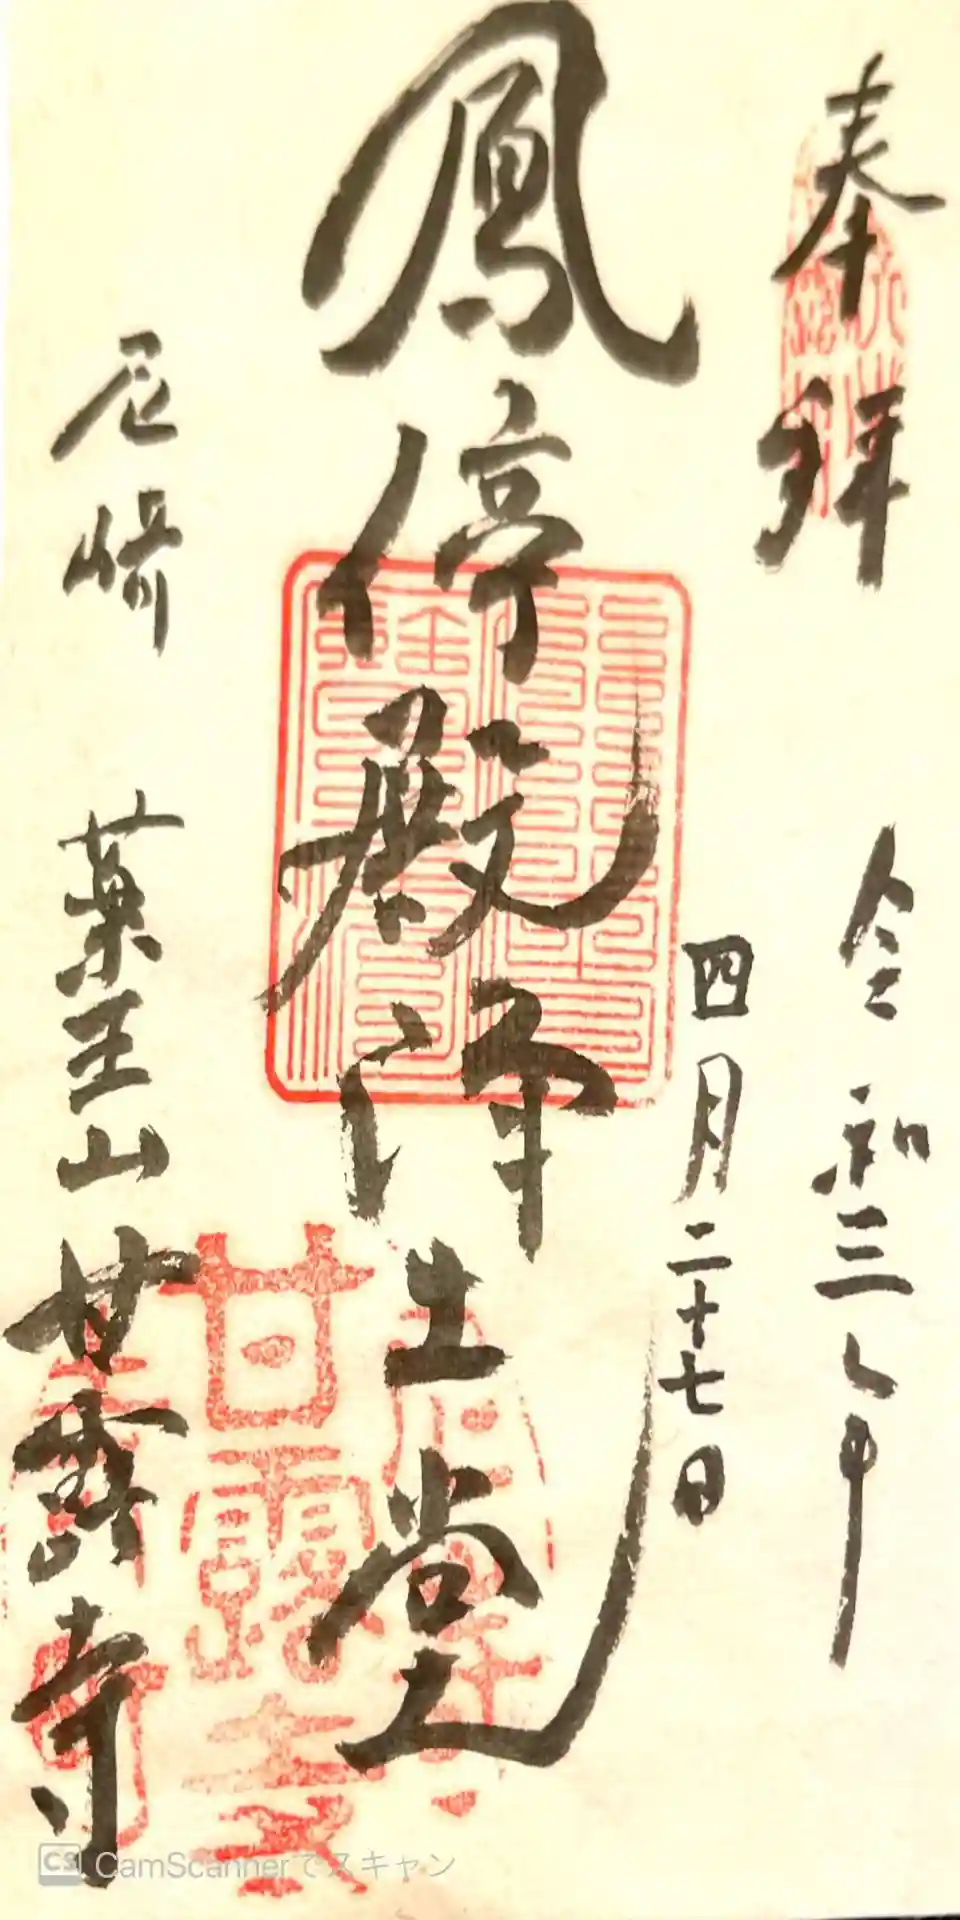 奉拝
令和三年
四月二十七日
鳳停殿浄土堂
尼崎
薬王山
甘露寺
甘露
CS CamScannerでスキャン